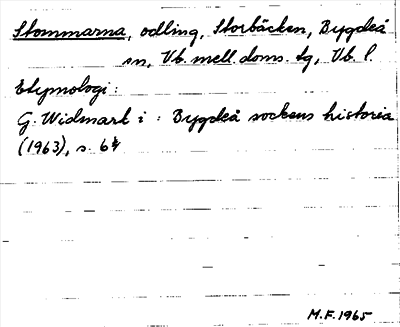 Stommarna, odling, Storbäcken, Bygdeå
sn, Vb. mell. doms. tg, Vb. l.
Etymologi:
G. Widmark i: Bygdeå sockens historia
(1963), s. 64
M.F. 1965